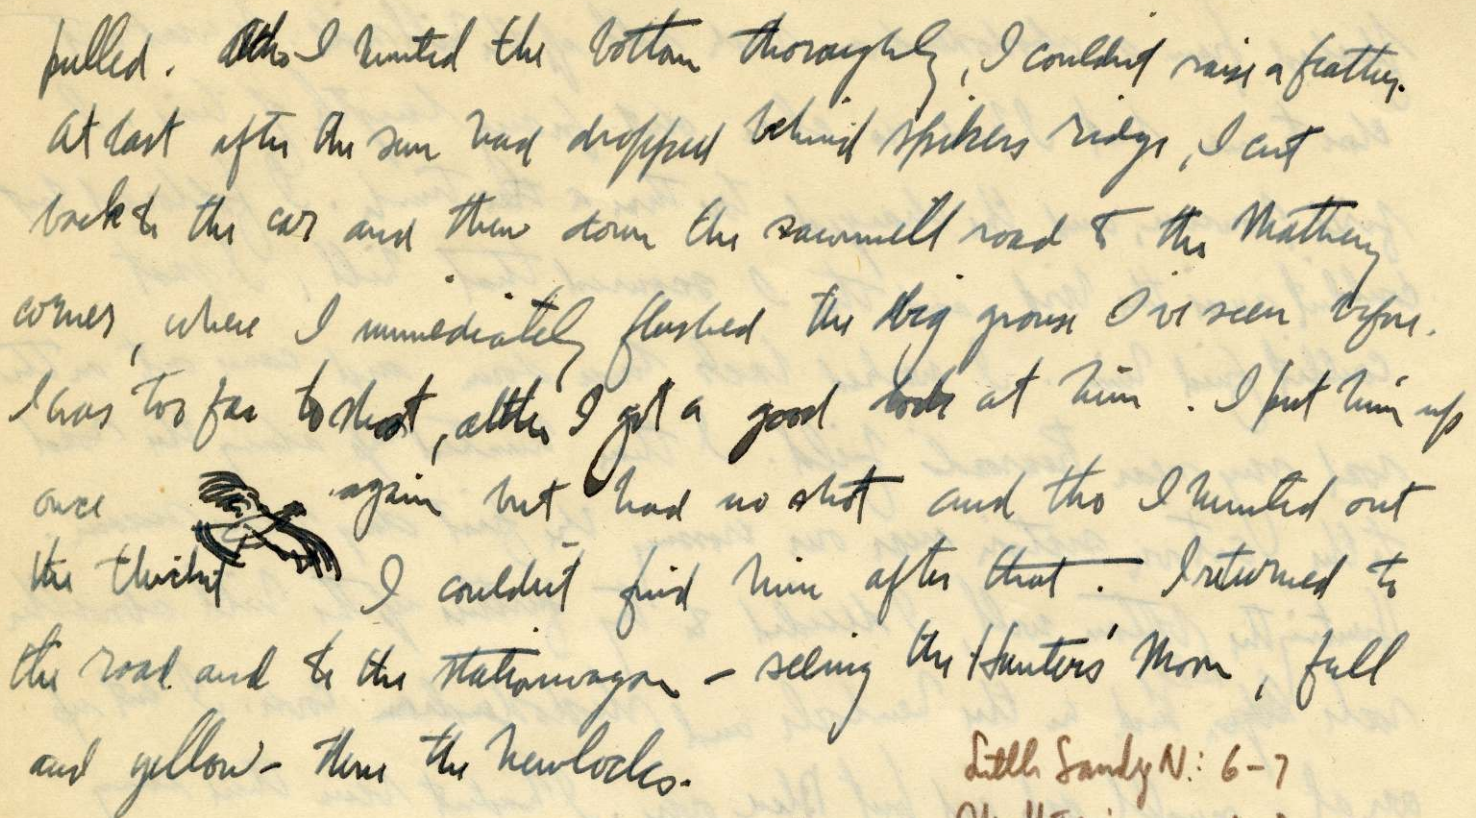 pulled. Altho I hunted the bottom thoroughly, I couldn't raise a feather.
At last after the sun had dropped behind Spikers ridge, I cut
back to the car and then down the sawmill road to the Matheny
corner, where I immediately flushed the big grouse I've seen before.
I was too far to shoot, altho I got a good look at him. I put him up
once again but had no shot and tho I hunted out
the thicket I couldn't find him after that. I returned to
the road and to the stationwagon – seeing the Hunters' Moon, full
and yellow – thru the hemlocks.
Little Sandy N.: 6-7